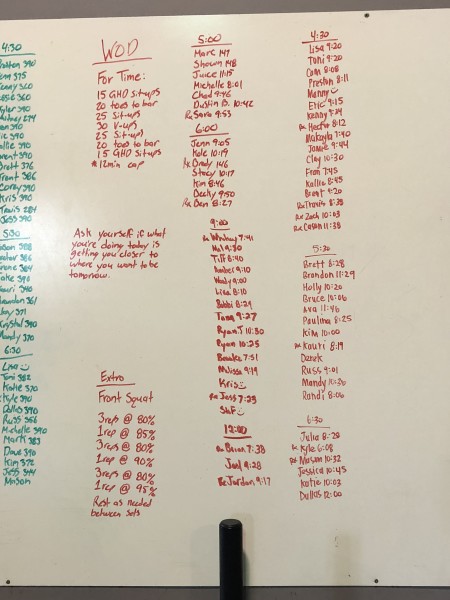 4:30
390
375
360
390
390
390
390
390
376
386
390
390
284
390
5:30
388
386
384
398
340
361
371
Krystal 390
Mandy 370
6:30
Lisa
Toni 382
Katie 370
Kyle 390
Dallas 390
Russ 356
Michelle 390
Mark 383
Dave 390
Kim 372
Jess 344
Mason
WOD
For Time:
15 GHD Sit-ups
20 toes to bar
25 Sit-ups
30 V-ups
25 Sit-ups
20 toes to bar
15 GHD Sit-ups
* 12min cap
Ask yourself if what
you're doing today is
getting you closer to
where you want to be
tomorrow.
Extra
Front Squat
3reps @ 80%
1rep @ 85%
3reps @ 80%
1rep @ 90%
3reps @ 80%
1rep @ 95%
Rest as needed
between sets
5:00
Marc 147
Shown 148
Juice 11:15
Michelle 8:01
Chad 9:46
Dustin B. 10:42
Rx Sara 9:53
6:00
Jenn 9:05
Kole 10:19
Rx Cindy 146
Stacy 10:17
Kim 8:46
Becky 9:50
Rx Ben 8:27
9:00
Rx Whitney 7:41
Mal 9:30
Tiff 8:40
Amber 9:10
Wendy 9:00
Lisa 8:10
Bobbi 8:29
Tara 9:27
Ryan T 10:30
Ryan 10:25
Brooke 7:51
Melissa 9:19
Kris
Rx Jess 7:23
Steph
12:00
Rx Brian 7:38
Joel 9:28
Rx Jordan 9:17
4:30
Lisa 9:20
Toni 9:20
Cam 8:08
Preston 8:11
Manny
Eric 9:15
Kenny 9:14
Rx Hector 8:12
Makayla 7:40
Jamie 9:44
Clay 10:30
Fran 7:45
Kallie 8:45
Brent 9:20
Rx Travis 8:38
Rx Zach 10:03
Rx Cason 11:38
5:30
Brett 8:28
Brandon 11:29
Holly 10:20
Bruce 10:06
Ava 11:46
Paulina 8:25
Kim 10:00
Rx Kauri 8:19
Derek
Russ 9:01
Mandy 10:20
Randi 8:06
6:30
Julia 8:20
Rx Kyle 6:08
Rx Mason 10:32
Jessica 10:45
Katie 10:03
Dallas 12:00